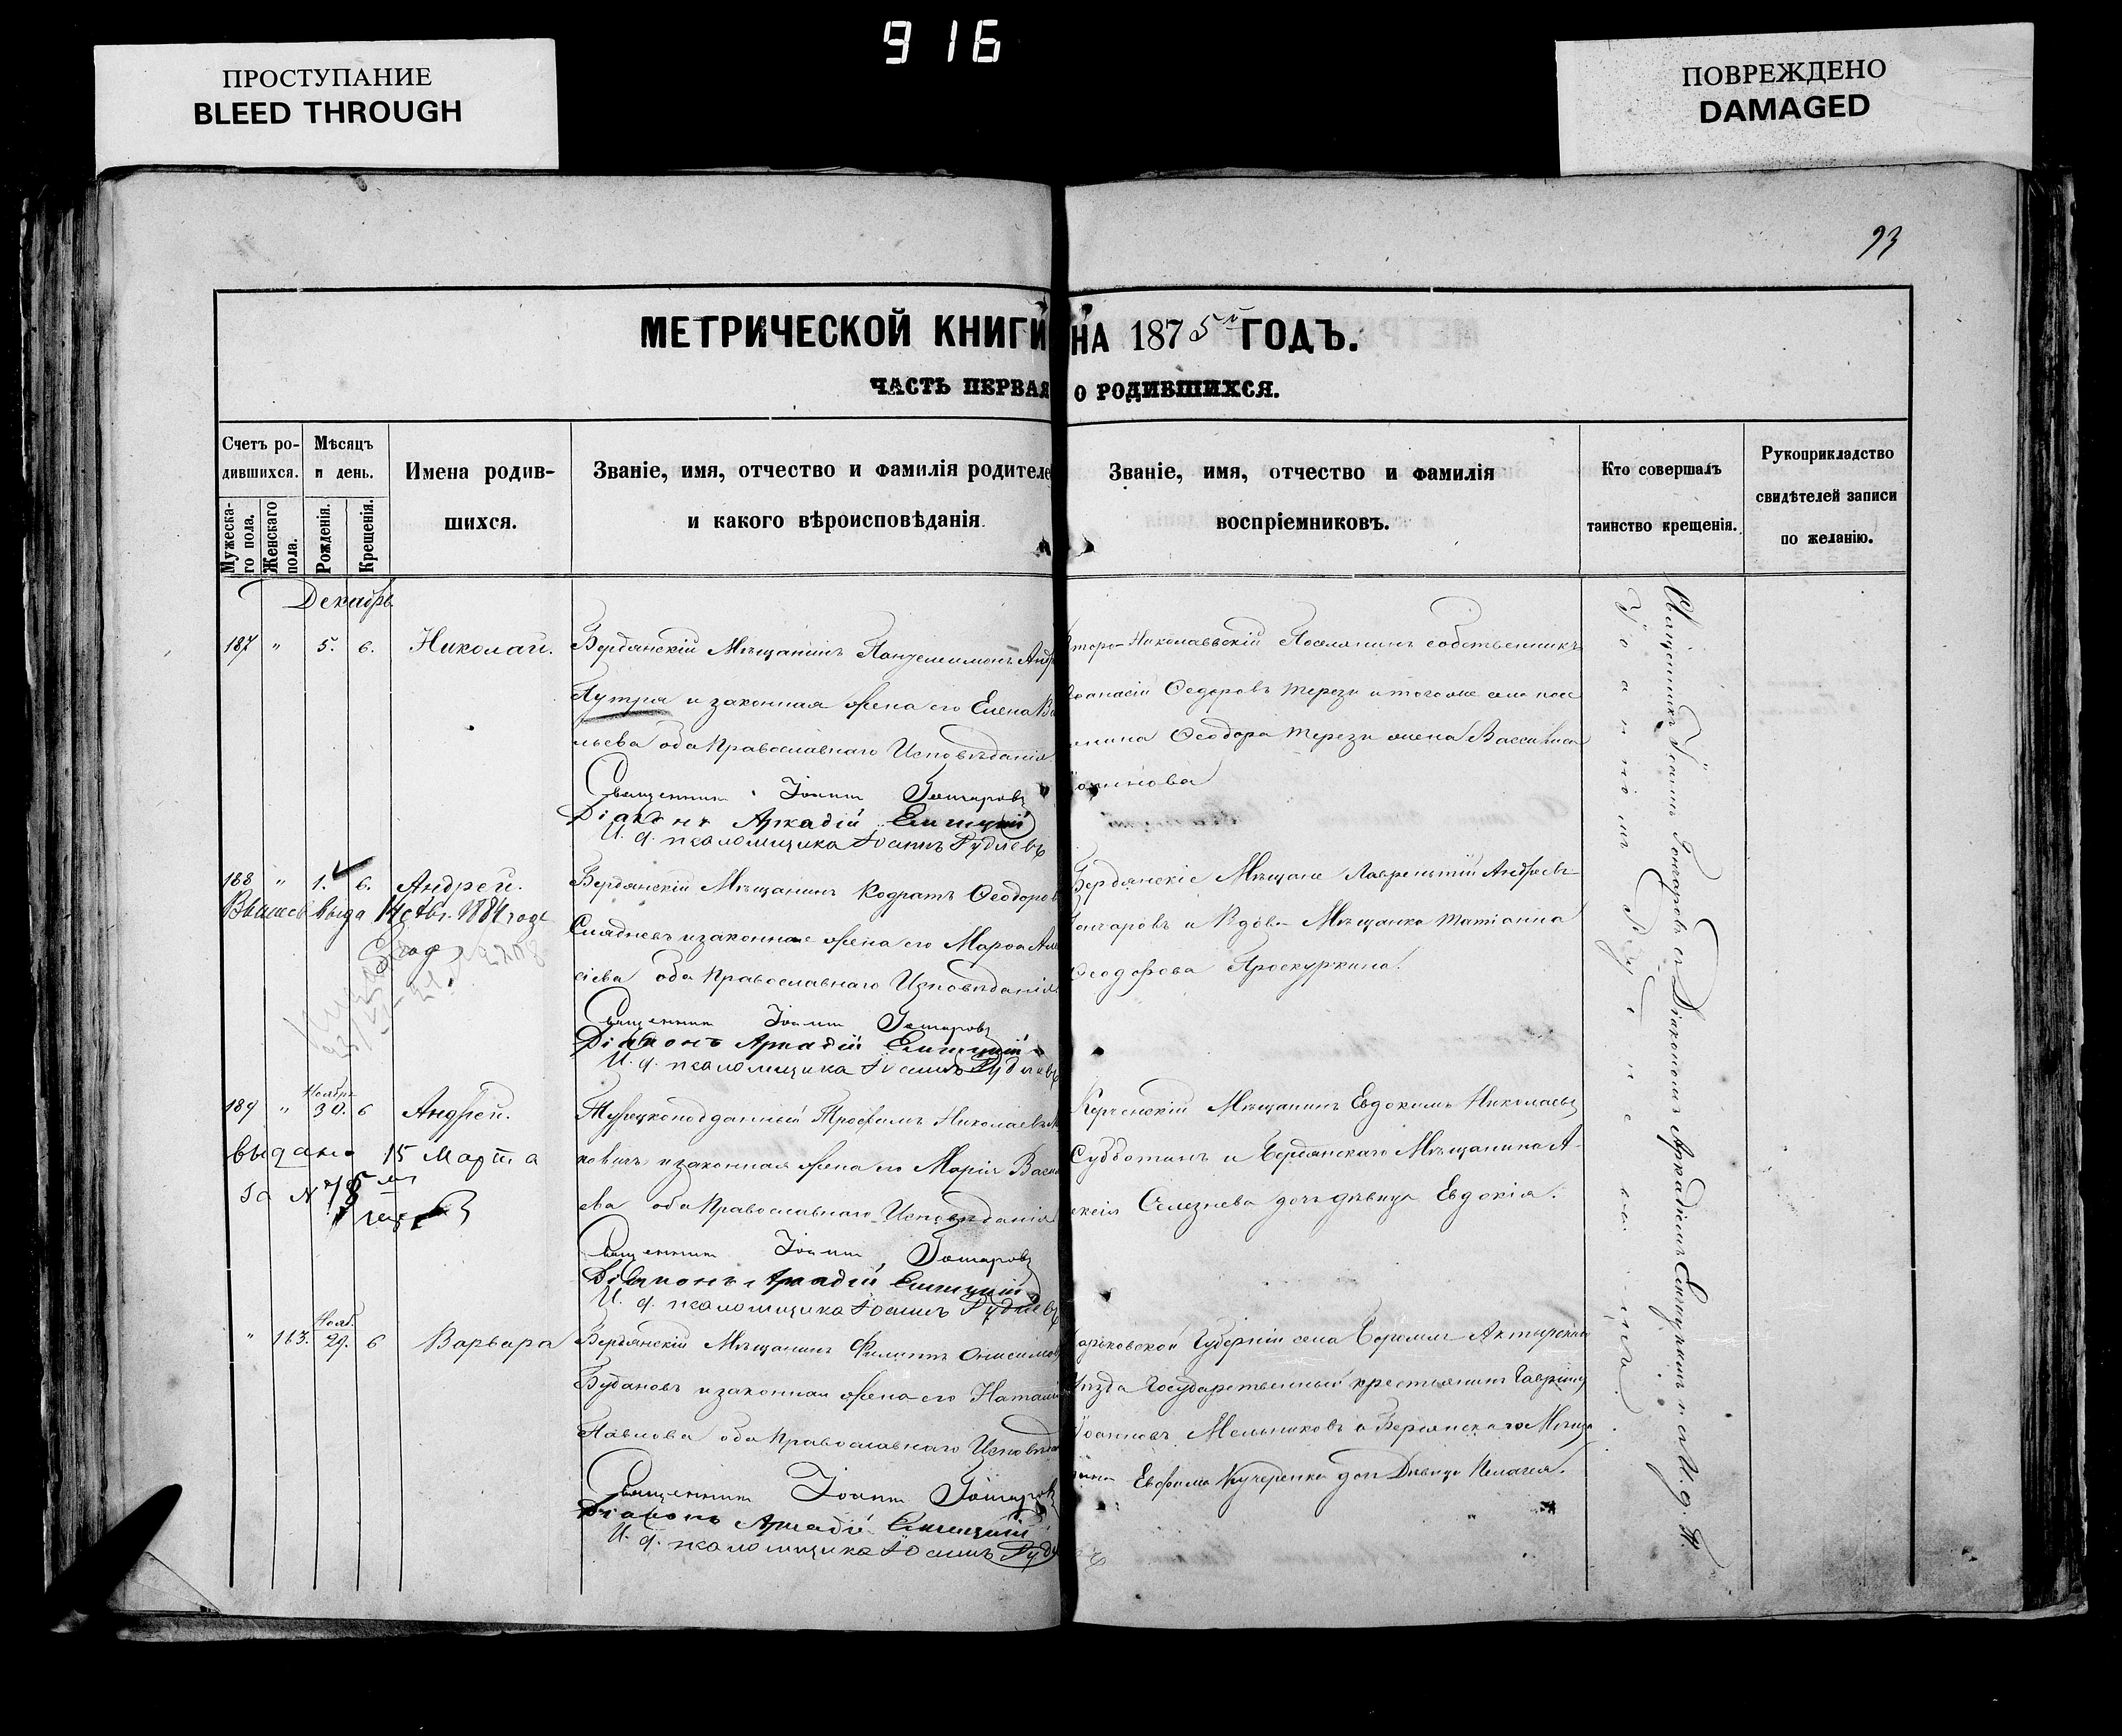 916
ПРОСТУПАНИЕ
BLEED THROUGH
ПОВРЕЖДЕНО
DAMAGED
93
МЕТРИЧЕСКОЙ КНИГИ НА 1875й ГОДЪ.
ЧАСТЬ ПЕРВАЯ О РОДИВШИХСЯ.
Счетъ ро-
дившихся.
Мужеска-
го пола.
Женскаго
пола.
Мѣсяцъ
и день.
Рожденія.
Крещенія.
Имена родив-
шихся.
Званіе, имя, отчество и фамилія родителе
и какого вѣроисповѣданія
Званіе, имя, отчество и фамилія
воспріемниковъ.
Кто совершалъ
таинство крещенія.
Рукоприкладство
свидѣтелей записи
по желанію.
Декабрь
187 " 5. 6. Николай.
Бердянскій Мѣщанинъ Пантелеимонъ Андр
и законная жена его Елена Ва
льева оба Православнаго Исповѣданія
Священникъ Іоаннъ Гончаровъ
Діаконъ Аркадій
И. д. псаломщика Іоаннъ Рудневъ
торо-Николаевскій Поселянинъ собственникъ
Ѳеодоровъ Терези и того же села посе
нина Ѳеодора Терези жена Васси
оаннова
188 " 1. 6. Андрей.
1884 года
Бердянскій Мѣщанинъ Кодратъ Ѳеодоров
и законная жена его Марѳа Але
сіева оба Православнаго Исповѣданія
Священникъ Іоаннъ Гончаровъ
Діаконъ Аркадій
И. д. псаломщика Іоаннъ Рудневъ
Бердянскіе Мѣщане Лаврентій Андреевъ
ончаровъ и Вдова Мѣщанка Татіанна
Ѳеодорова Проскуркина.
189 " Ноябрь 30. 6 Андрей.
выдано 15 Марта
за №
Турецкоподданный Трофимъ Николаевъ
ковичъ и законная жена его Марія Васи
ева оба Православнаго Исповѣданія
Священникъ Іоаннъ Гончаровъ
Діаконъ Аркадій
И. д. псаломщика Іоаннъ Рудневъ
Керченскій Мѣщанинъ Евдокимъ Николаевъ
Субботинъ и Бердянскаго Мѣщанина А-
ексія Селезнева дочь дѣвица Евдокія.
" 163. Нояб. 29. 6 Варвара
Бердянскій Мѣщанинъ Филиппъ Онисимов
Будановъ и законная жена его Наталія
Павлова оба Православнаго Исповѣда
Священникъ Іоаннъ Гончаровъ
Діаконъ Аркадій
И. д. псаломщика Іоаннъ Рудн
арьковской Губерніи села Боромля Ахтырскаго
ѣзда Государственный крестьянинъ Гавріилъ
Іоанновъ Мельниковъ и Бердянскаго Мѣща
нина Евфима Кучеренка дочь Дѣвица Пелагея.
Священникъ Іоаннъ Гончаровъ съ Діакономъ Аркадіемъ и И. д. П.
Іоанномъ Рудневымъ